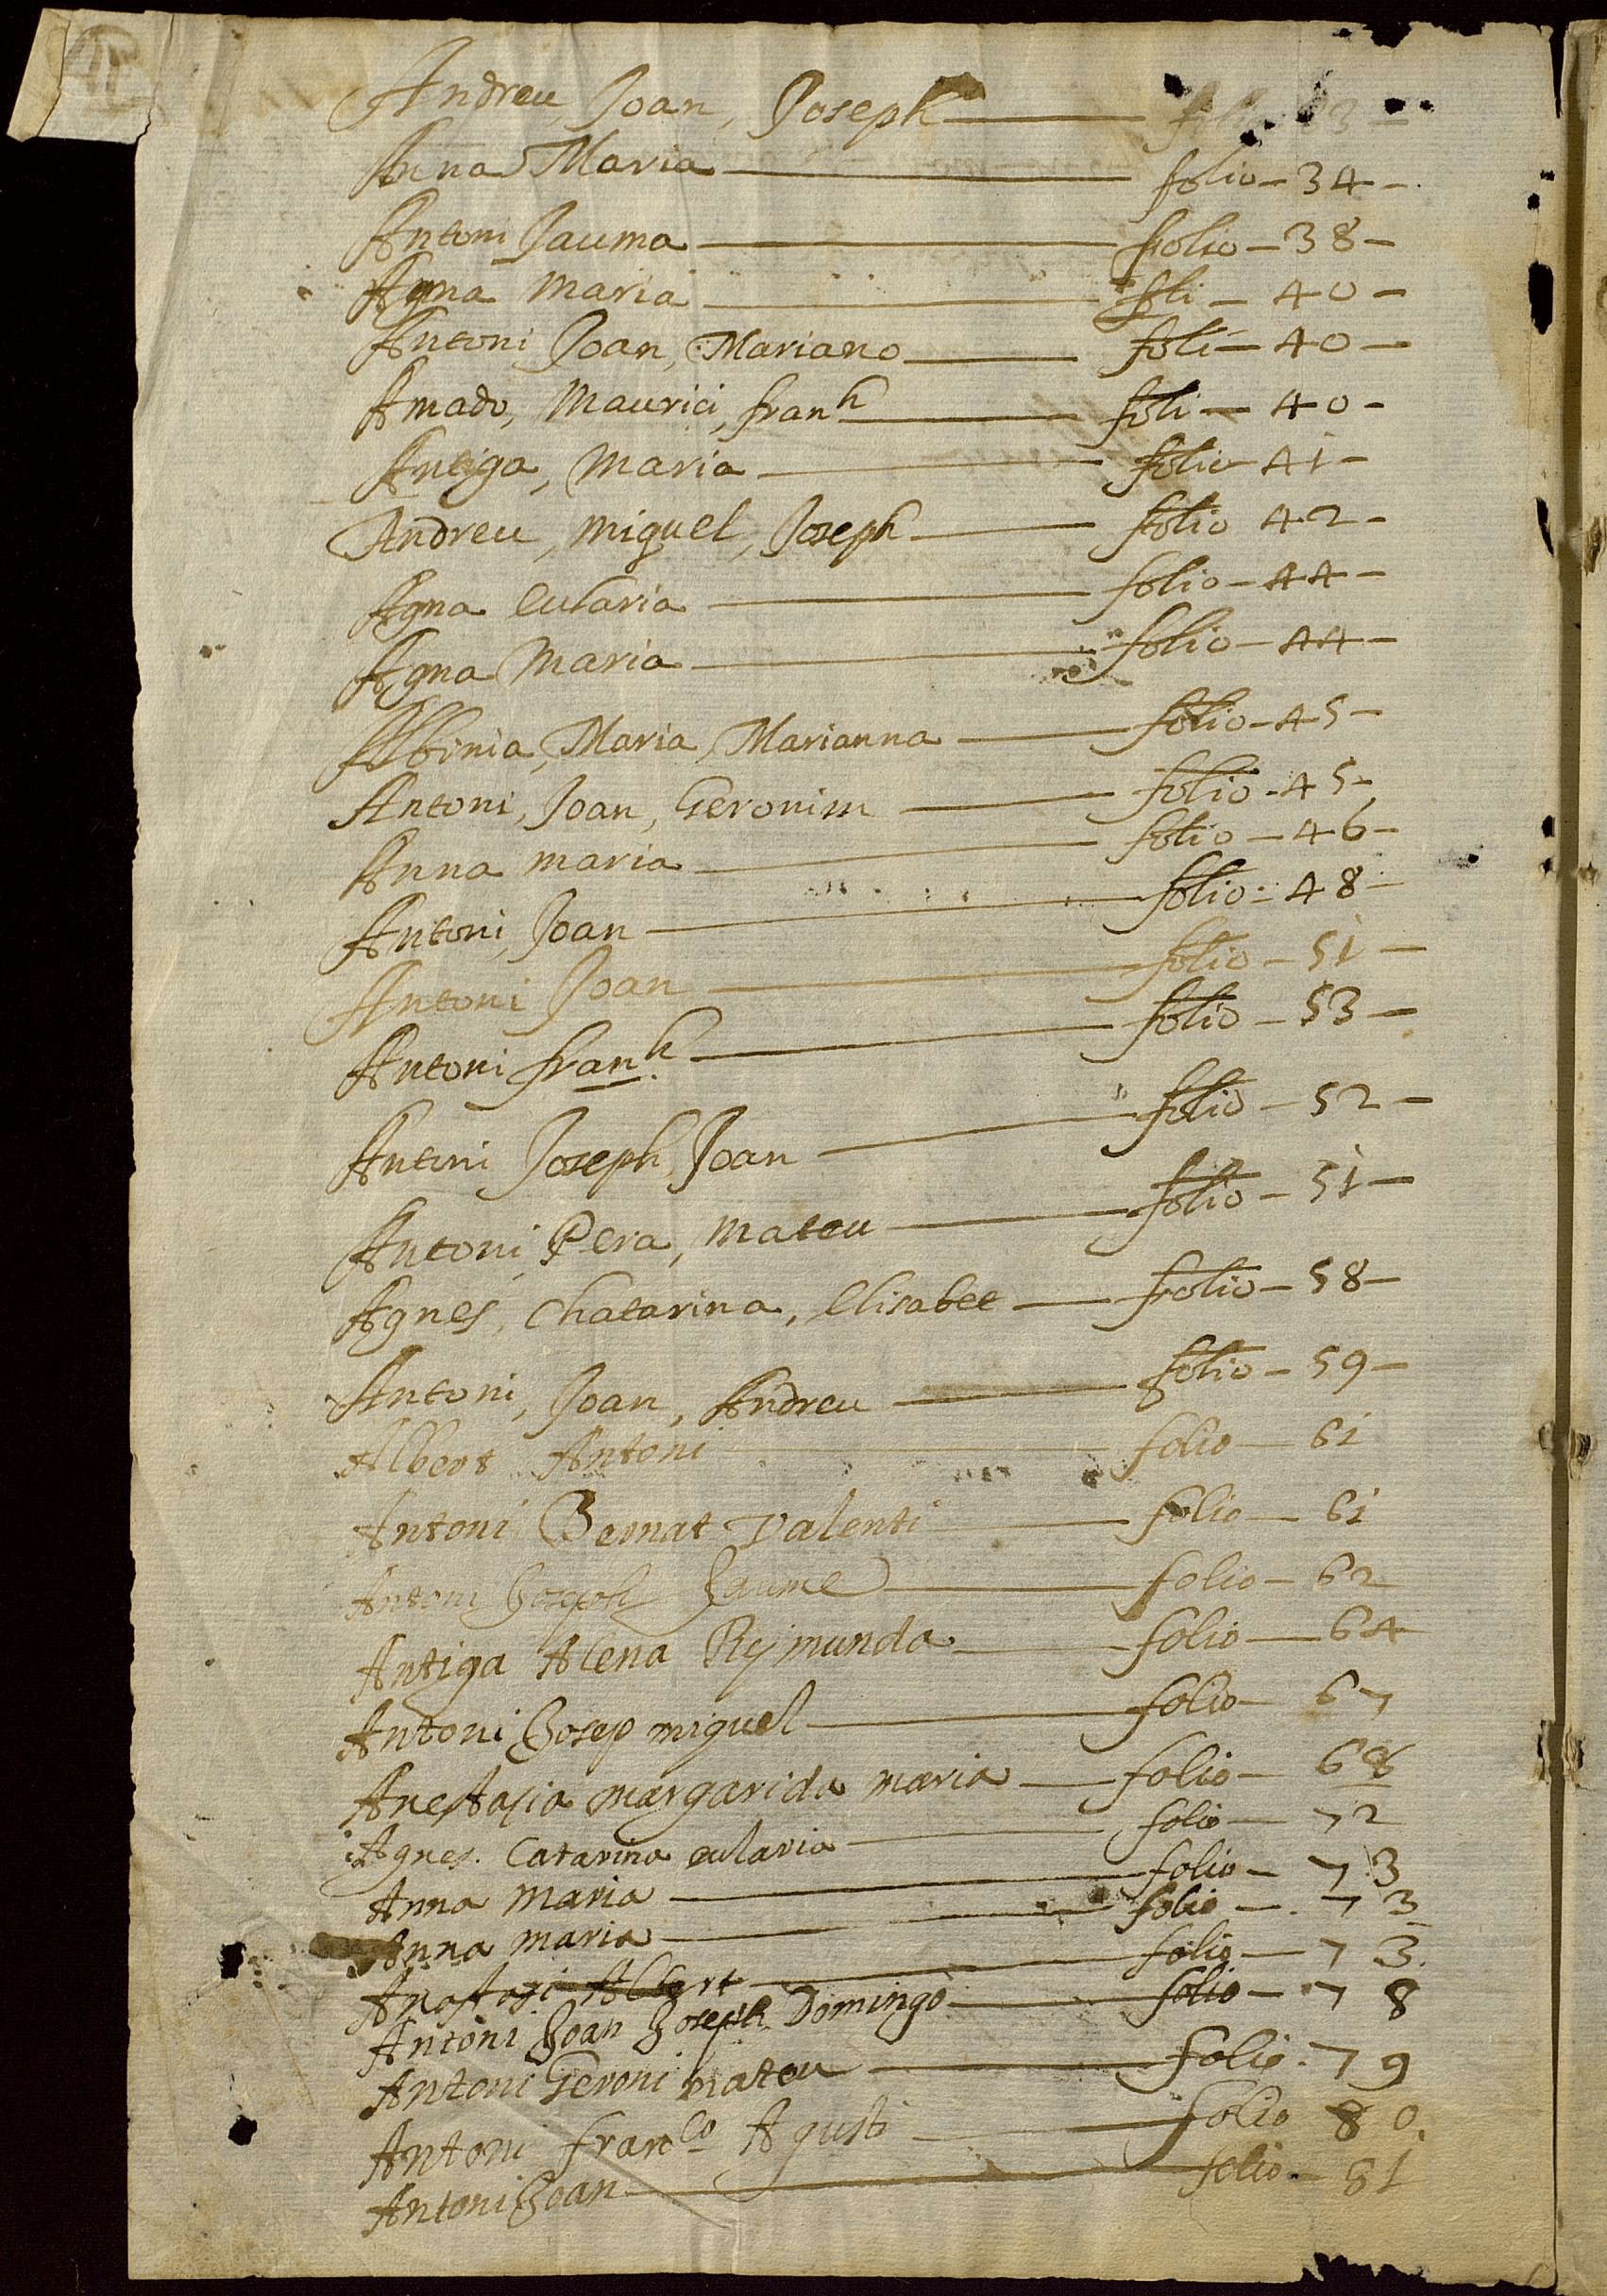 Andreu Joan, Joseph — 3 —
Anna Maria — folio — 34 —
Antoni Jauma — folio — 38 —
Agna Maria — foli — 40 —
Antoni Joan, Mariano — foli — 40 —
Amado, Maurici, franh — foli — 40 —
Antiga, Maria — folio 41 —
Andreu, Miguel, Joseph — folio 42 —
Agna Eularia — folio — 44 —
Agna Maria — folio — 44 —
Albinia, Maria, Marianna — folio — 45 —
Antoni, Joan, Geronim — folio — 45 —
Anna maria — folio — 46 —
Antoni, Joan — folio — 48 —
Antoni Joan — folio — 51 —
Antoni franh — folio — 53 —
Antoni Joseph, Joan — folio — 52 —
Antoni, Pera, Mateu — folio — 51 —
Agnes, Chatarina, Elisabet — folio — 58 —
Antoni, Joan, Andreu — folio — 59 —
Albert Antoni — folio — 61
Antoni Bernat Valenti — folio — 61
Antoni Joseph Jaume — folio — 62
Antiga Alena Rymunda — folio — 64
Antoni Josep miguel — folio — 67
Anestasia margarida maria — folio — 68
Agnes. Catarina eularia — folio — 72
Anna Maria — folio — 73
Anna maria — folio — 73
Anastasi Albert — folio — 73
Antoni Joan Joseph Domingo — folio — 78
Antoni Geroni Mateu — folio. 79
Antoni franco Agusti — folio 80.
Antoni Joan — folio — 81